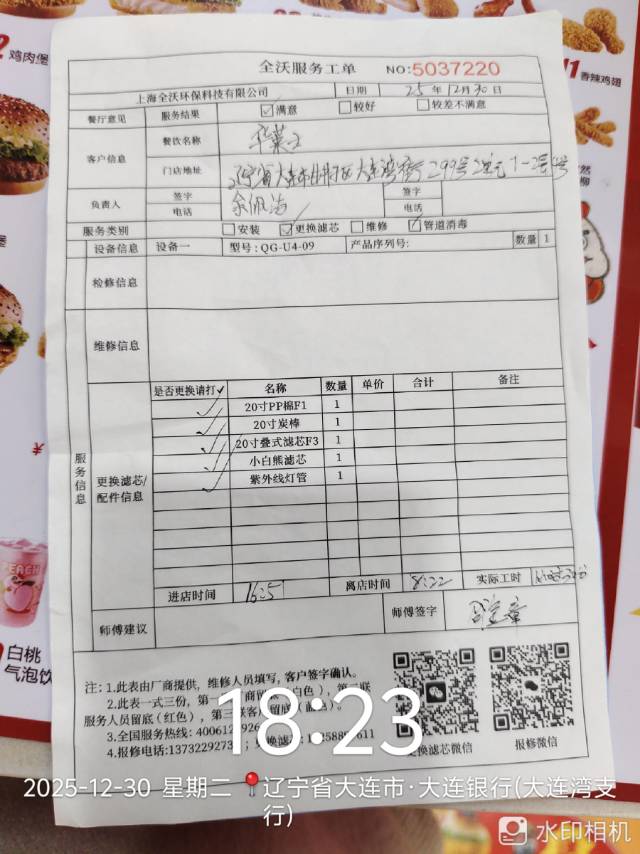 2 鸡肉堡
11 香辣鸡翅
全沃服务工单 NO:5037220
上海全沃环保科技有限公司 日期 25年12月30日
餐厅意见 服务结果 ☑满意 □较好 □较差不满意
客户信息 餐饮名称 华莱士
门店地址
负责人 签字 签字
电话 电话
服务类别 □安装 ☑更换滤芯 □维修 ☑管道消毒
设备信息 设备一 型号:QG-U4-09 产品序列号: 数量 1
检修信息
维修信息
服务信息
更换滤芯/配件信息
是否更换请打✓ 名称 数量 单价 合计 备注
✓ 20寸PP棉F1 1
✓ 20寸炭棒 1
✓ 20寸叠式滤芯F3 1
✓ 小白熊滤芯 1
✓ 紫外线灯管 1
进店时间 离店时间 18:22 实际工时
师傅建议 师傅签字
注:1.此表由厂商提供,维修人员填写,客户签字确认。
2.此表一式三份,第一
服务人员留底(红色),第三联客
3.全国服务热线:400612
4.报修电话:1373229273
更换滤芯微信 报修微信
白桃
气泡饮
PEACH
18:23
2025-12-30 星期二 辽宁省大连市·大连银行(大连湾支
行)
水印相机